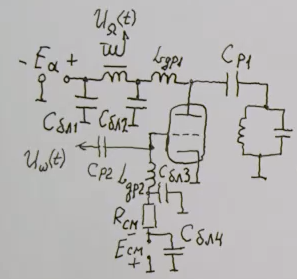 U_Ω(t)
- E_a +
L_др1
C_р1
C_бл1
C_бл2
U_ω(t)
C_р2
L_др2
C_бл3
R_см
-
E_см
+
C_бл4